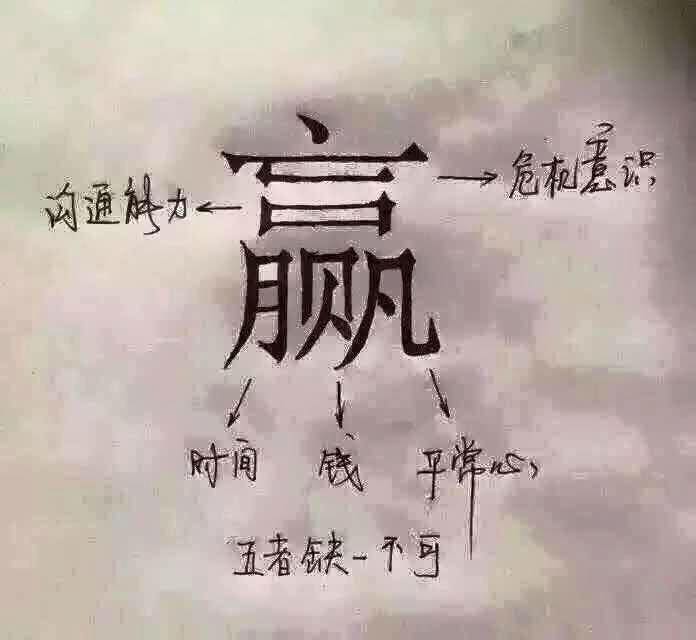 赢
沟通能力
危机意识
时间 钱 平常心
五者缺一不可